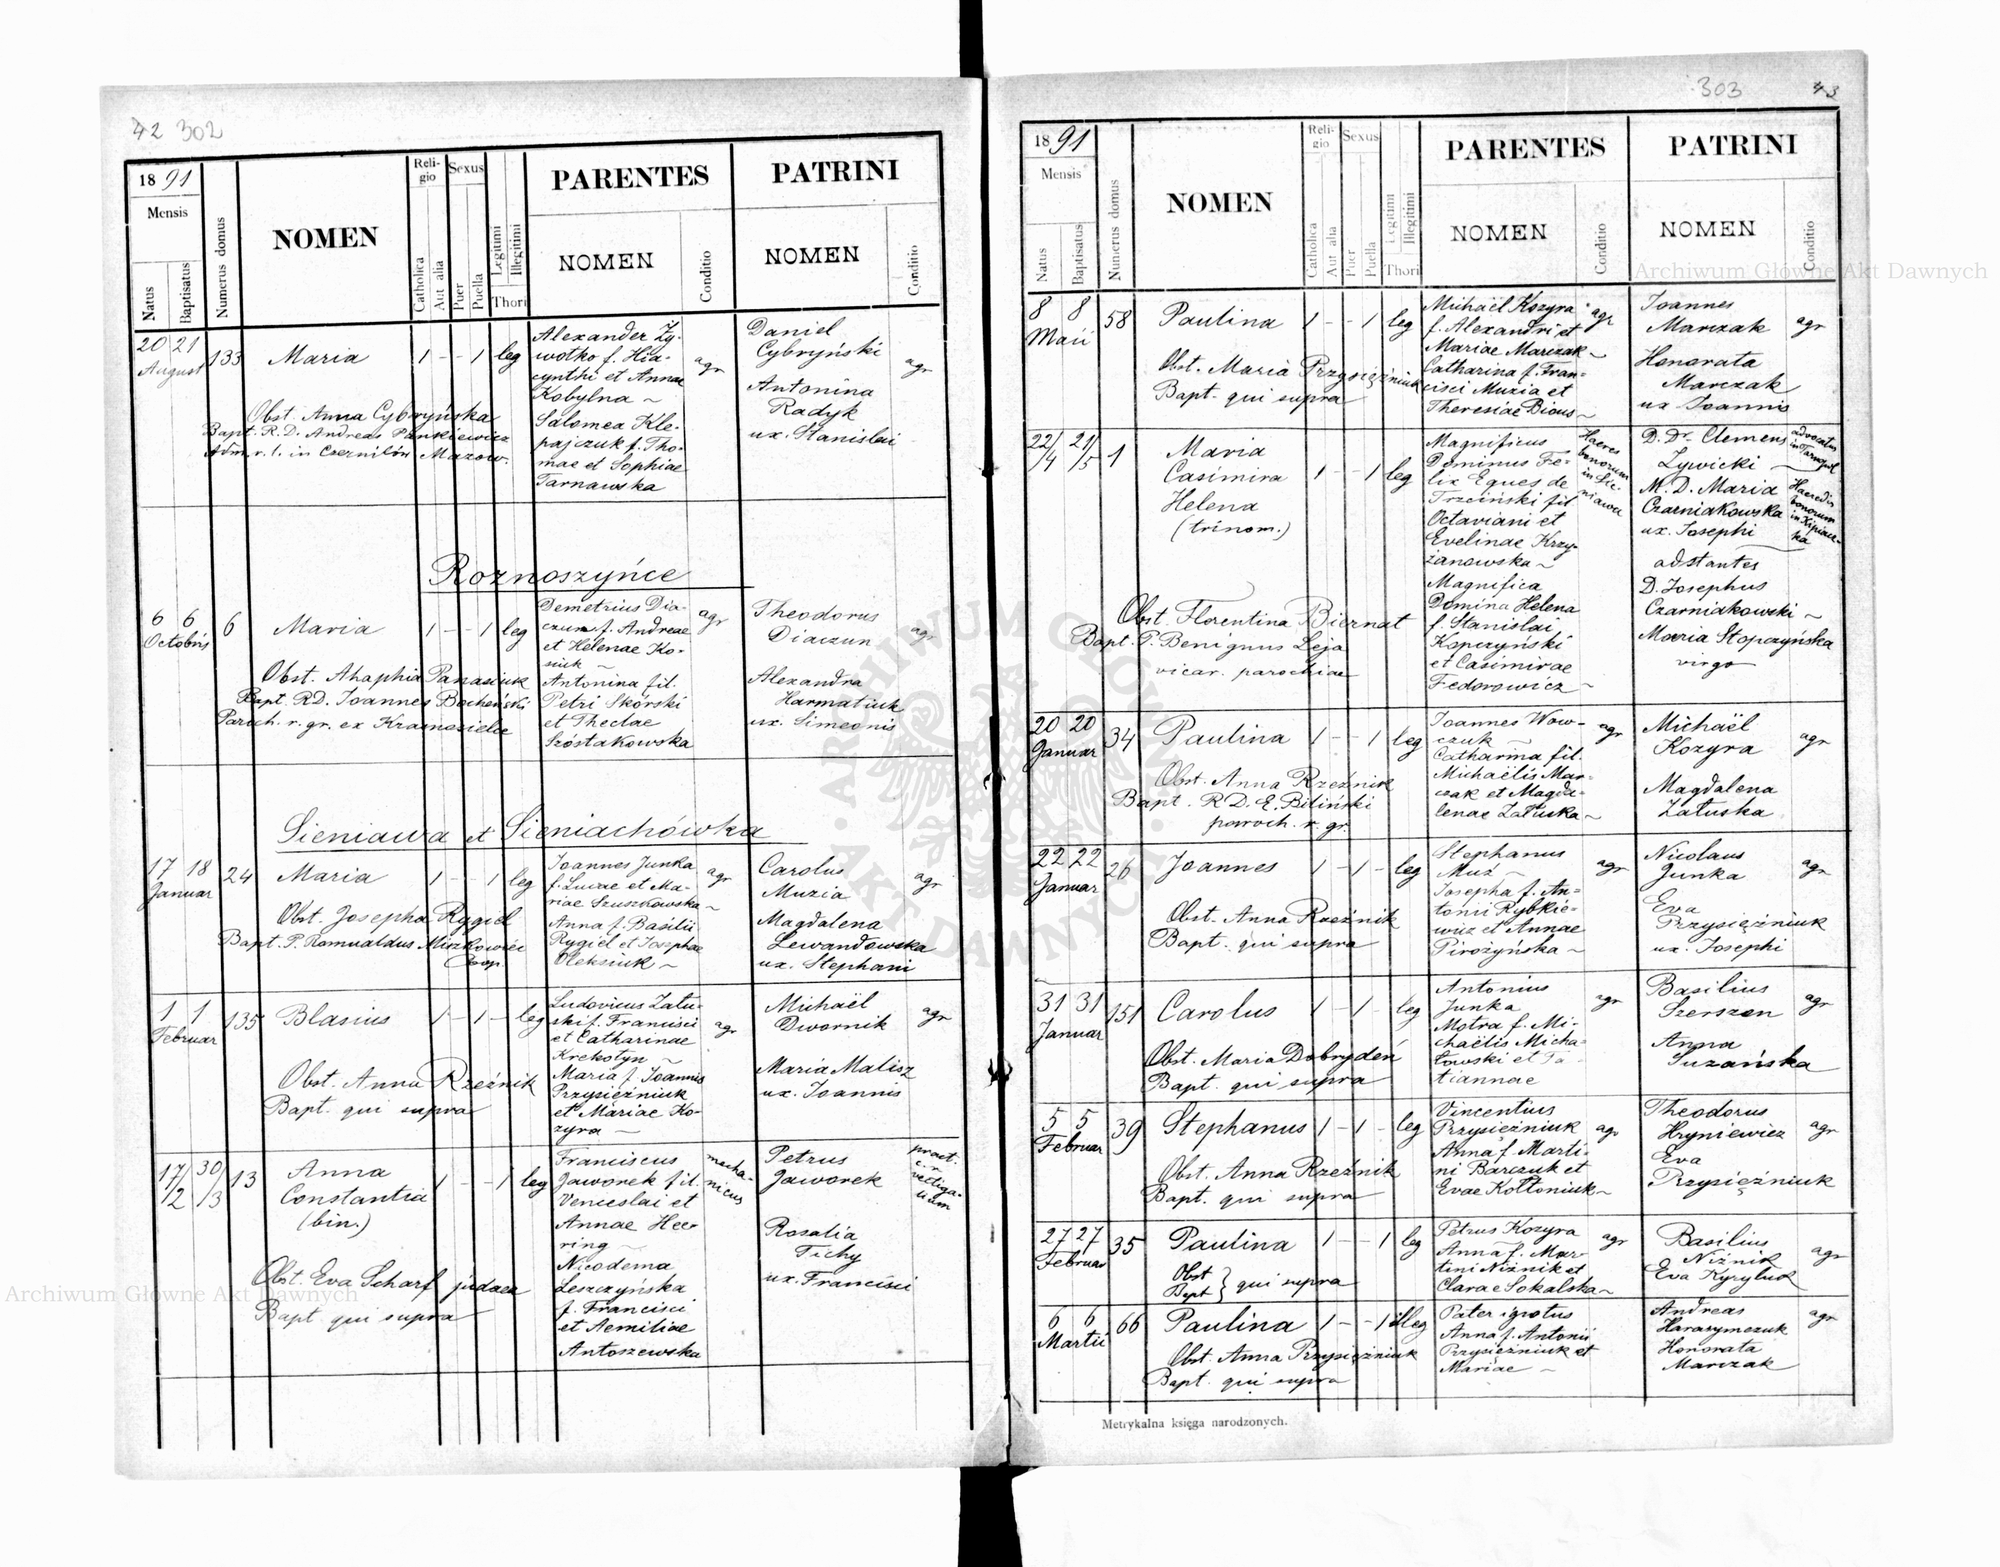 42 302
18 91
Mensis
Natus
Baptisatus
Numerus domus
NOMEN
Reli-
gio
Catholica
Aut alia
Sexus
Puer
Puella
Legitimi
Illegitimi
Thori
PARENTES
NOMEN
Conditio
PATRINI
NOMEN
Conditio
20 21
August
133
Maria
1 - - 1 leg
Alexander Ży-
wotko f. Hia-
cynthi et Annae
Kobylna
Salomea Kle-
pajczuk f. Tho-
mae et Sophiae
Tarnawska
agr
Daniel
Cybryński
Antonina
Radyk
ux. Stanislai
agr
Obst. Anna Cybryńska
Bapt. R. D. Andreas Pankiewicz
Adm. r. l. in Czernilów Mazow.
Roznoszyńce
6 6
Octobris
6
Maria
1 - - 1 leg
Demetrius Dia-
czun f. Andreae
et Helenae Ko-
siuk
Antonina fil.
Petri Skórski
et Theclae
Szóstakowska
agr
Theodorus
Diaczun
Alexandra
Harmatiuk
ux. Simeonis
agr
Obst. Ahaphia Panasiuk
Bapt. RD. Joannes Bocheński
Paroch. r. gr. ex Krasnosielce
Sieniawa et Sieniachówka
17 18
Januar
24
Maria
1 - - 1 leg
Joannes Junka
f. Lucae et Ma-
riae Szuszkowska
Anna f. Basilii
Rygiel et Josephae
Oleksiuk
agr
Carolus
Muzia
Magdalena
Lewandowska
ux. Stephani
agr
Obst. Josepha Rygiel
Bapt. P. Romualdus Miszkowicz
Coop.
1 1
Februar
135
Blasius
1 - 1 - leg
Ludovicus Zału-
ski f. Francisci
et Catharinae
Krekotyn
Maria f. Joannis
Przysiężniuk
et Mariae Ko-
zyra
agr
Michaël
Dwornik
Maria Malisz
ux. Joannis
agr
Obst. Anna Rzeźnik
Bapt. qui supra
17/2 30/3
13
Anna
Constantia
(bin.)
1 - - 1 leg
Franciscus
Jaworek fil.
Venceslai et
Annae Hee-
ring
Nicodema
Leszczyńska
f. Francisci
et Aemiliae
Antoszewska
mecha-
nicus
Petrus
Jaworek
Rosalia
Tichy
ux. Francisci
pract.
c. r.
vectiga-
lium
Obst. Eva Scharf judaea
Bapt. qui supra
303 43
18 91
Mensis
Natus
Baptisatus
Numerus domus
NOMEN
Reli-
gio
Catholica
Aut alia
Sexus
Puer
Puella
Legitimi
Illegitimi
Thori
PARENTES
NOMEN
Conditio
PATRINI
NOMEN
Conditio
8 8
Maii
58
Paulina
1 - - 1 leg
Michaël Kozyra
f. Alexandri et
Mariae Marczak
Catharina f. Fran-
cisci Muzia et
Theresiae Bious
agr
Joannes
Marczak
Honorata
Marczak
ux Joannis
agr
Obst. Maria Przysiężniuk
Bapt. qui supra
22/4 21/5
1
Maria
Casimira
Helena
(trinom.)
1 - - 1 leg
Magnificus
Dominus Fe-
lix Eques de
Trzciński fil
Octaviani et
Evelinae Krzy-
żanowska
Magnifica
Domina Helena
f. Stanislai
Kopczyński
et Casimirae
Fedorowicz
Haeres
bonorum
in Sie-
niawa
D. Dr. Clemens
Żywicki
M. D. Maria
Czarniakowska
ux. Josephi
adstantes
D. Josephus
Czarniakowski
Maria Stopczyńska
virgo
advocatus
in Tarnopol
Haeredis
bonorum
in Kipiacz-
ka
Obst. Florentina Biernat
Bapt. P. Benignus Leja
vicar. parochiae
20 20
Januar
34
Paulina
1 - - 1 leg
Joannes Wow-
czuk
Catharina fil.
Michaëlis Mar-
czak et Magda-
lenae Załuska
agr
Michaël
Kozyra
Magdalena
Załuska
agr
Obst. Anna Rzeźnik
Bapt. R D. E. Biliński
paroch. r. gr.
22 22
Januar
26
Joannes
1 - 1 - leg
Stephanus
Muz
Josepha f. An-
tonii Rybkie-
wicz et Annae
Pirożyńska
agr
Nicolaus
Junka
Eva
Przysiężniuk
ux. Josephi
agr
Obst. Anna Rzeźnik
Bapt. qui supra
31 31
Januar
151
Carolus
1 - 1 - leg
Antonius
Junka
Motra f. Mi-
chaëlis Micha-
łowski et Ta-
tiannae
agr
Basilius
Szerszen
Anna
Suzańska
agr
Obst. Maria Dobrydeń
Bapt. qui supra
5 5
Februar
39
Stephanus
1 - 1 - leg
Vincentius
Przysiężniuk
Anna f. Marti-
ni Barczuk et
Evae Kołtoniuk
agr
Theodorus
Hryniewicz
Eva
Przysiężniuk
agr
Obst. Anna Rzeźnik
Bapt. qui supra
27 27
Februar
35
Paulina
1 - - 1 leg
Petrus Kozyra
Anna f. Mar-
tini Niżnik et
Clarae Sokalska
agr
Basilius
Niżnik
Eva Kyryluk
agr
Obst
Bapt } qui supra
6 6
Martii
66
Paulina
1 - - 1 illeg
Pater ignotus
Anna f. Antonii
Przysiężniuk et
Mariae
Andreas
Harasymczuk
Honorata
Marczak
agr
Obst. Anna Przysiężniuk
Bapt. qui supra
Metrykalna księga narodzonych.
Archiwum Główne Akt Dawnych
Archiwum Główne Akt Dawnych
ARCHIWUM GŁÓWNE AKT DAWNYCH